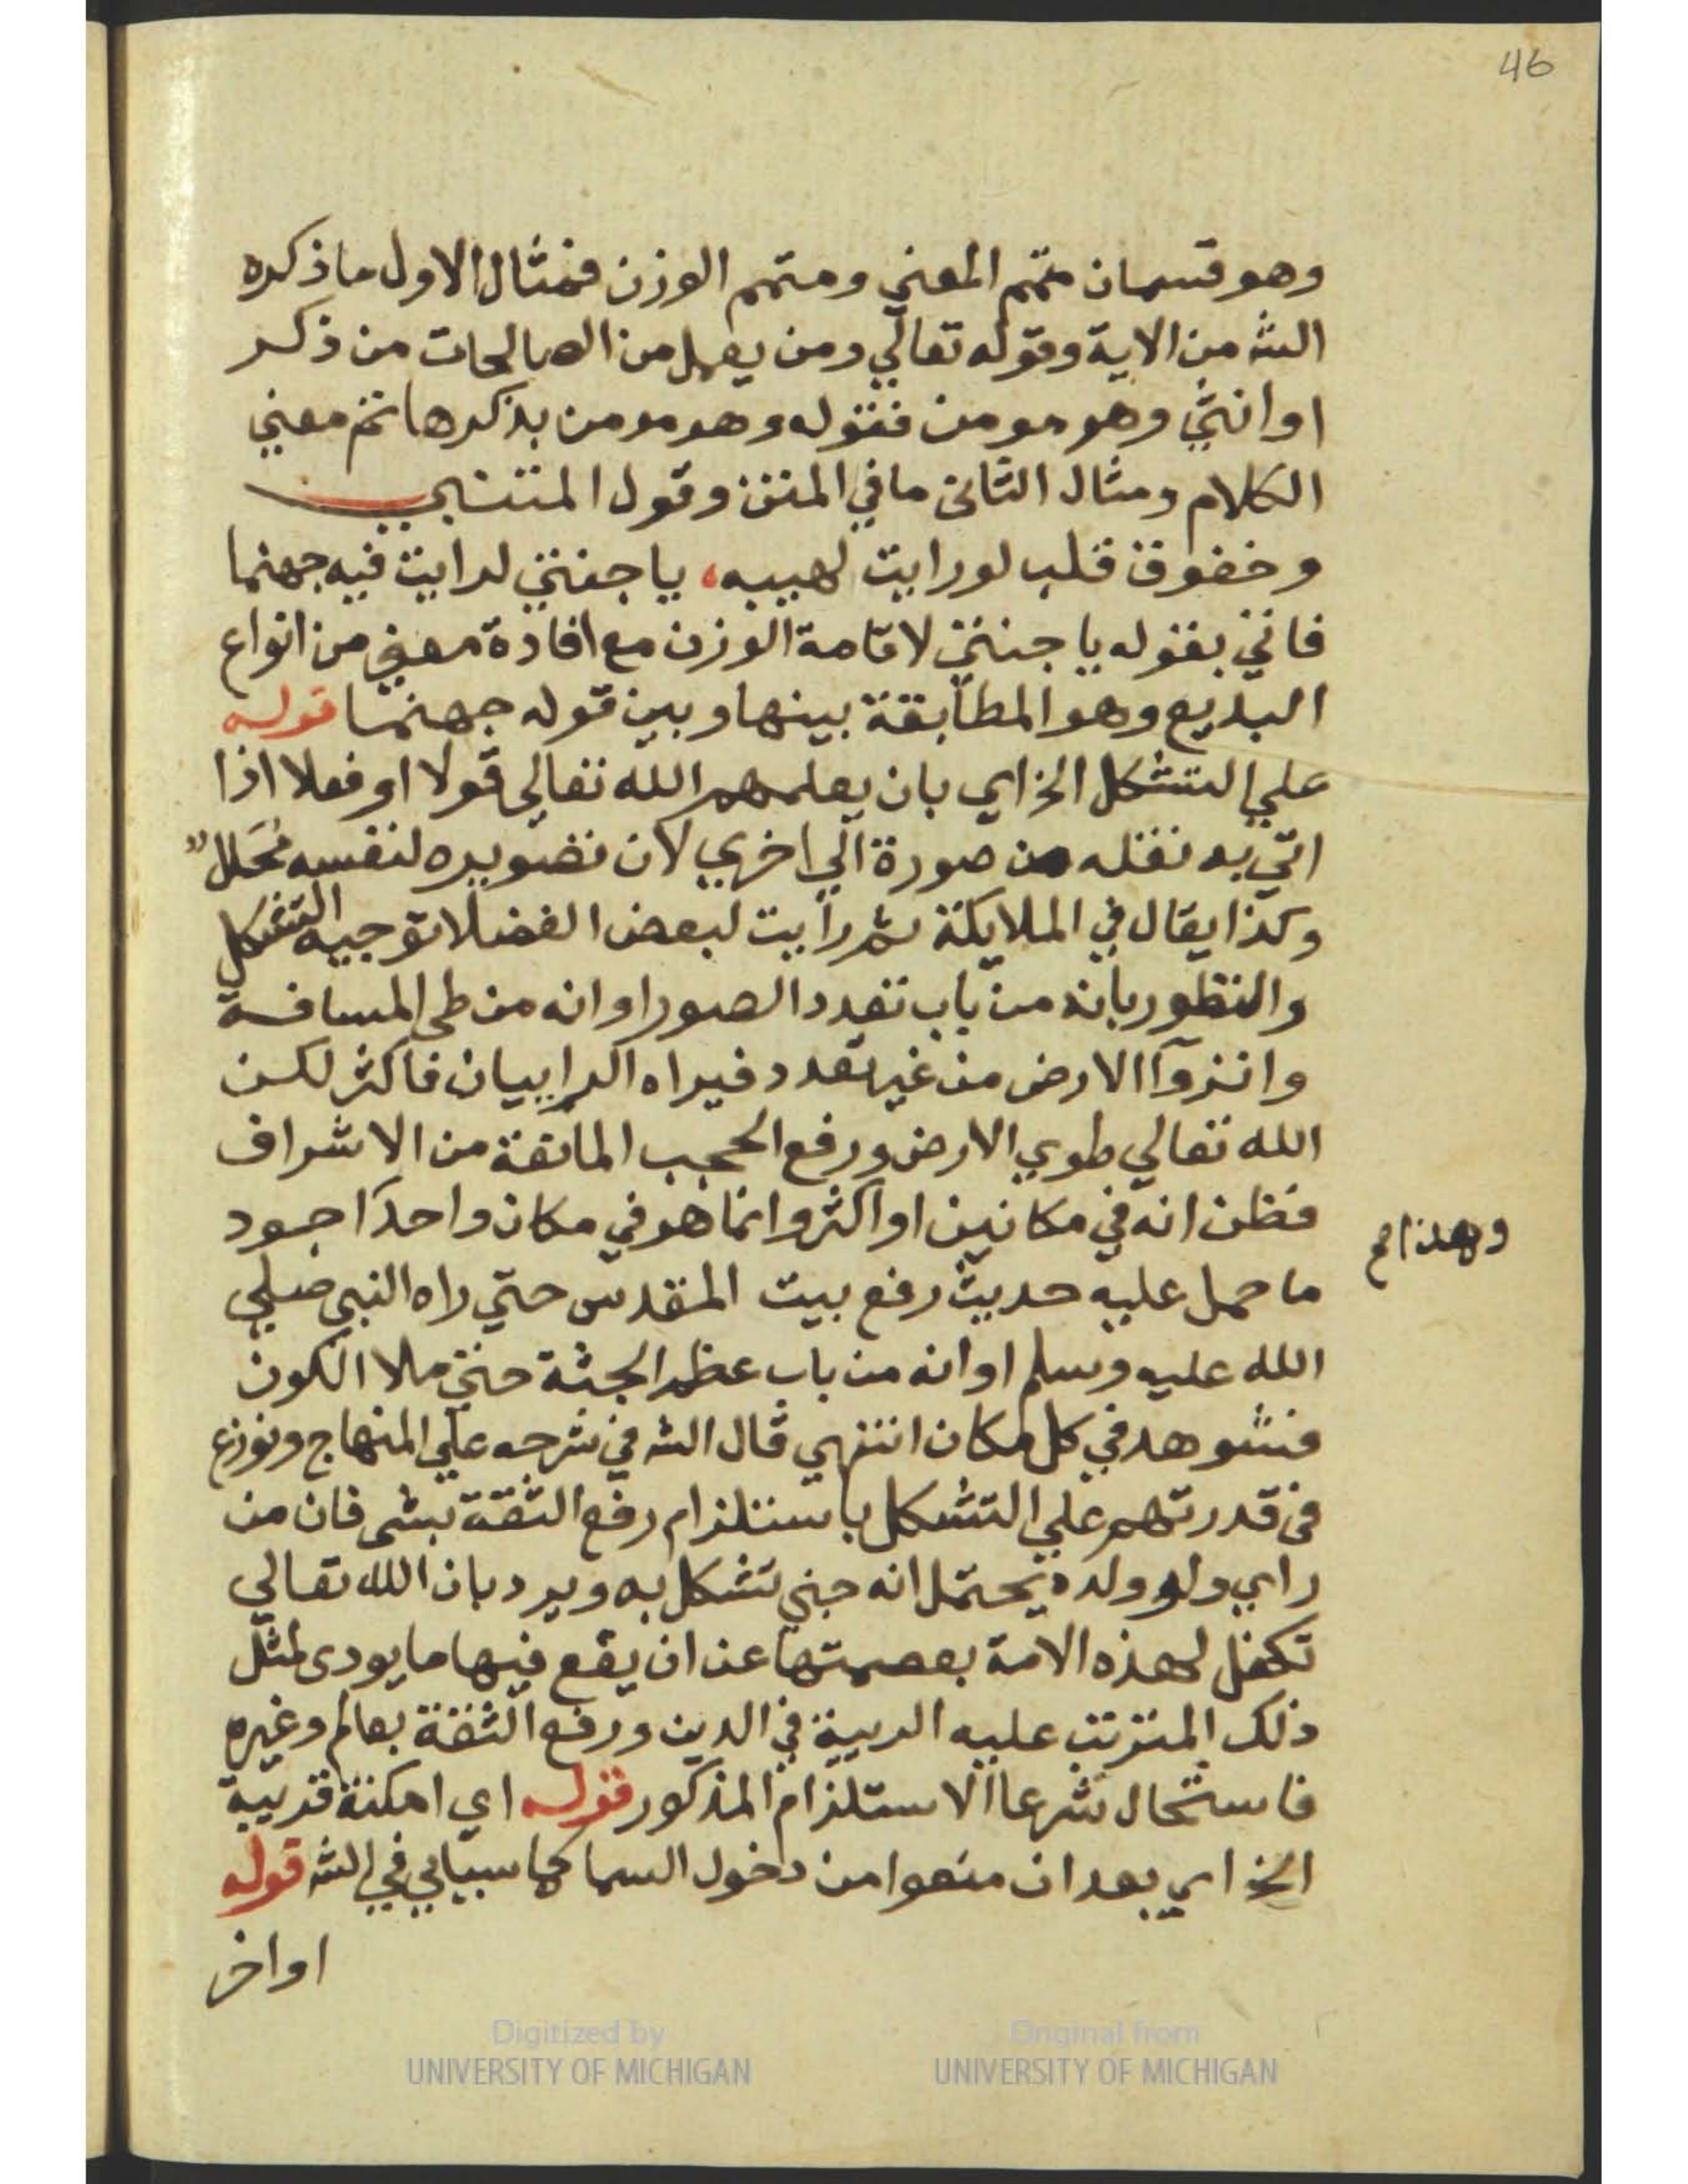 46
وهو قسمان متمم المعني ومتمم الوزن فمثال الاول ما ذكره
الشه من الاية وقوله تعالي ومن يعمل من الصالحات من ذكر
او انثي وهو مومن فقوله وهو مومن بذكرها تم معني
الكلام ومثال الثاني ما في المتن وقول المتنبي
وخفوق قلب لو رايت لهيبه، يا جنتي لرايت فيه جهنما
فاتي بقوله يا جنتي لاقامة الوزن مع افادة معني من انواع
البديع وهو المطابقة بينها وبين قوله جهنما قوله
علي التشكل الخ اي بان يعلمهم الله تعالي قولا او فعلا اذا
اتي به نقله من صورة الي اخري لان تصويره لنفسه محال
وكذا يقال في الملايكة ثم رايت لبعض الفضلا توجيه التشكل
والتطور بانه من باب تعدد الصور او انه من طي المسافة
وانزوآ الارض من غير تعدد فيراه الراييان فاكثر لكن
الله تعالي طوي الارض ورفع الحجب المانعة من الاشراف
فظن انه في مكانين او اكثر وانما هو في مكان واحد اجود
وهذا صح
ما حمل عليه حديث رفع بيت المقدس حتي راه النبي صلي
الله عليه وسلم او انه من باب عظم الجثة حتي ملا الكون
فشوهد في كل مكان انتهي قال الشه في شرحه علي المنهاج ونوزع
في قدرتهم علي التشكل باستلزام رفع الثقة بشي فان من
راي ولو ولده يحتمل انه جني تشكل به ويرد بان الله تعالي
تكفل لهذه الامة بعصمتها عن ان يقع فيها ما يودي لمثل
ذلك المترتب عليه الريبة في الدين ورفع الثقة بعالم وغيره
فاستحال شرعا الاستلزام المذكور قوله اي امكنة قريبة
الخ اي بعد ان منعوا من دخول السما كما سيايي في الشه قوله
اواخر
Digitized by
UNIVERSITY OF MICHIGAN
Original from
UNIVERSITY OF MICHIGAN